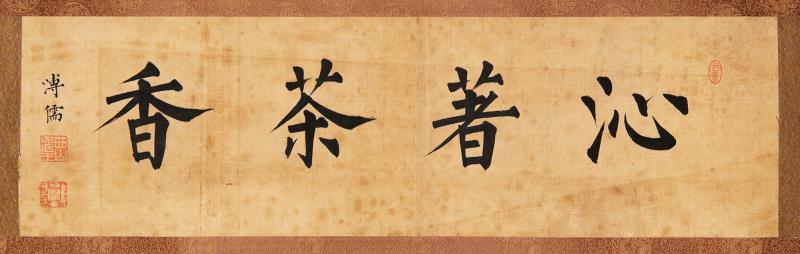 沁著茶香
溥儒